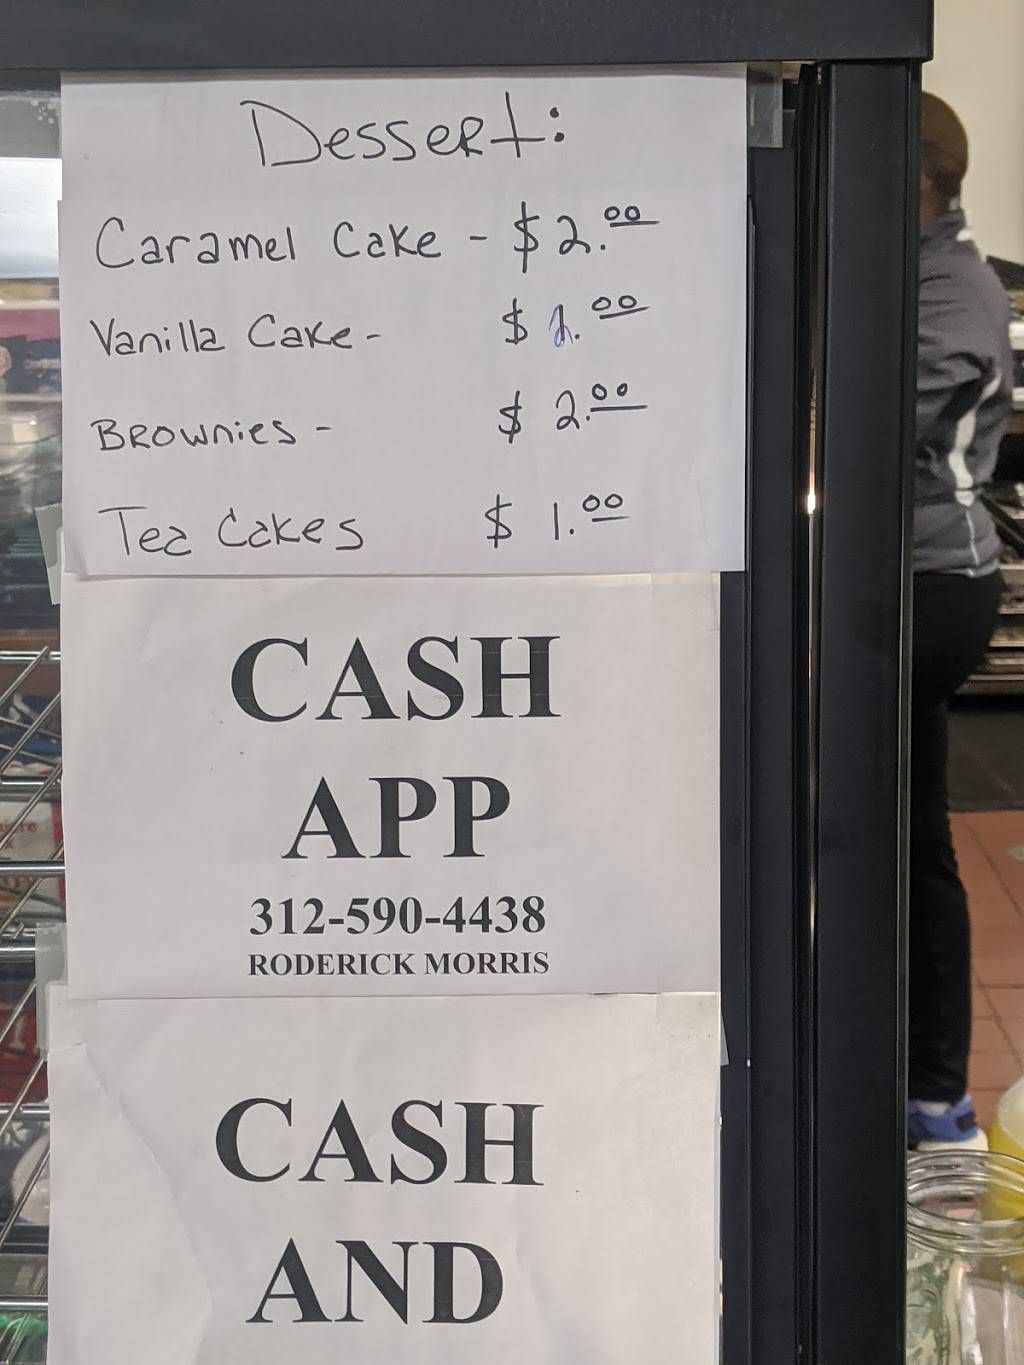 Dessert:
Caramel Cake - $2.00
Vanilla Cake - $ .00
Brownies - $2.00
Tea Cakes $1.00
CASH
APP
312-590-4438
RODERICK MORRIS
CASH
AND